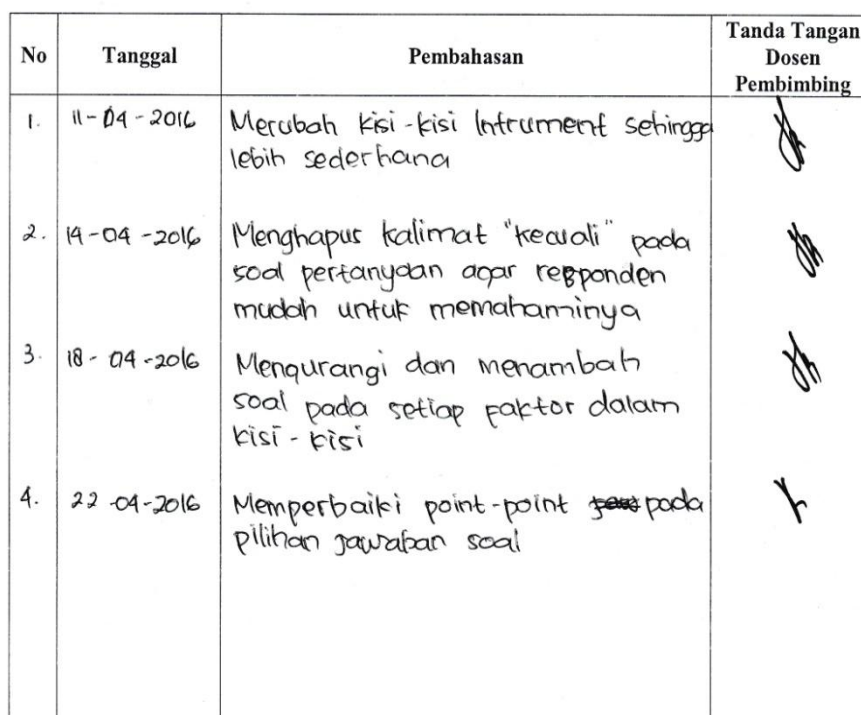 No Tanggal Pembahasan Tanda Tangan
Dosen
Pembimbing
1. 11-04-2016 Merubah kisi-kisi Intrument sehingga
lebih sederhana
2. 14-04-2016 Menghapus kalimat "kecuali" pada
soal pertanyaan agar responden
mudah untuk memahaminya
3. 18-04-2016 Mengurangi dan menambah
soal pada setiap faktor dalam
kisi-kisi
4. 22-04-2016 Memperbaiki point-point pada
pilihan jawaban soal